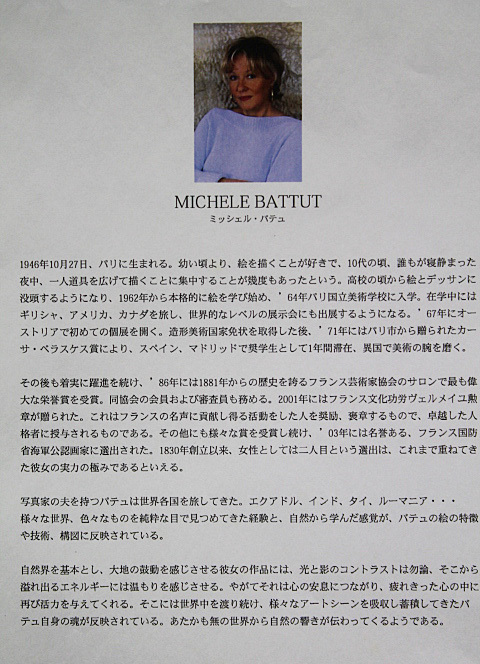 MICHELE BATTUT
ミッシェル・バテュ
1946年10月27日、パリに生まれる。幼い頃より、絵を描くことが好きで、10代の頃、誰もが寝静まった
夜中、一人道具を広げて描くことに集中することが幾度もあったという。高校の頃から絵とデッサンに
没頭するようになり、1962年から本格的に絵を学び始め、’64年パリ国立美術学校に入学。在学中には
ギリシャ、アメリカ、カナダを旅し、世界的なレベルの展示会にも出展するようになる。’67年にオー
ストリアで初めての個展を開く。造形美術国家免状を取得した後、’71年にはパリ市から贈られたカー
サ・ベラスケス賞により、スペイン、マドリッドで奨学生として1年間滞在、異国で美術の腕を磨く。
その後も着実に躍進を続け、’86年には1881年からの歴史を誇るフランス芸術家協会のサロンで最も偉
大な栄誉賞を受賞。同協会の会員および審査員も務める。2001年にはフランス文化功労ヴェルメイユ勲
章が贈られた。これはフランスの名声に貢献し得る活動をした人を奨励、褒章するもので、卓越した人
格者に授与されるものである。その他にも様々な賞を受賞し続け、’03年には名誉ある、フランス国防
省海軍公認画家に選出された。1830年創立以来、女性としては二人目という選出は、これまで重ねてき
た彼女の実力の極みであるといえる。
写真家の夫を持つバテュは世界各国を旅してきた。エクアドル、インド、タイ、ルーマニア・・・
様々な世界、色々なものを純粋な目で見つめてきた経験と、自然から学んだ感覚が、バテュの絵の特徴
や技術、構図に反映されている。
自然界を基本とし、大地の鼓動を感じさせる彼女の作品には、光と影のコントラストは勿論、そこから
溢れ出るエネルギーには温もりを感じさせる。やがてそれは心の安息につながり、疲れきった心の中に
再び活力を与えてくれる。そこには世界中を渡り続け、様々なアートシーンを吸収し蓄積してきたバ
テュ自身の魂が反映されている。あたかも無の世界から自然の響きが伝わってくるようである。